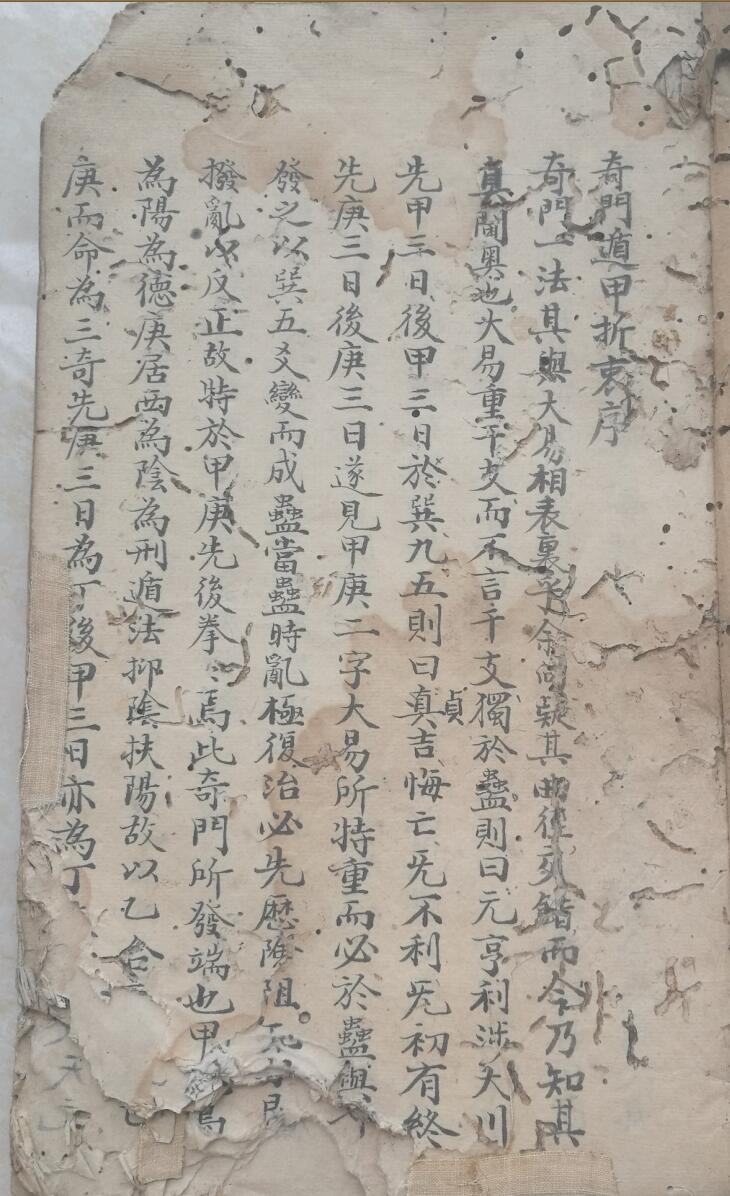 奇門遁甲折衷序
奇門一法其與大易相表裏乎余向疑其曲徑而今乃知其
真閫奧也大易重干支而不言干支獨於蠱則曰元亨利涉大川
先甲三日後甲三日於巽九五則曰真貞吉悔亡旡不利旡初有終
先庚三日後庚三日遂見甲庚二字大易所特重而必於蠱與
發之以巽五爻變而成蠱當蠱時亂極復治必先歷險阻
撥亂以反正故特於甲庚先後拳〻焉此奇門所發端也甲
為陽為德庚居西為陰為刑遁法抑陰扶陽故以乙合
庚而命為三奇先庚三日為丁後甲三日亦為丁